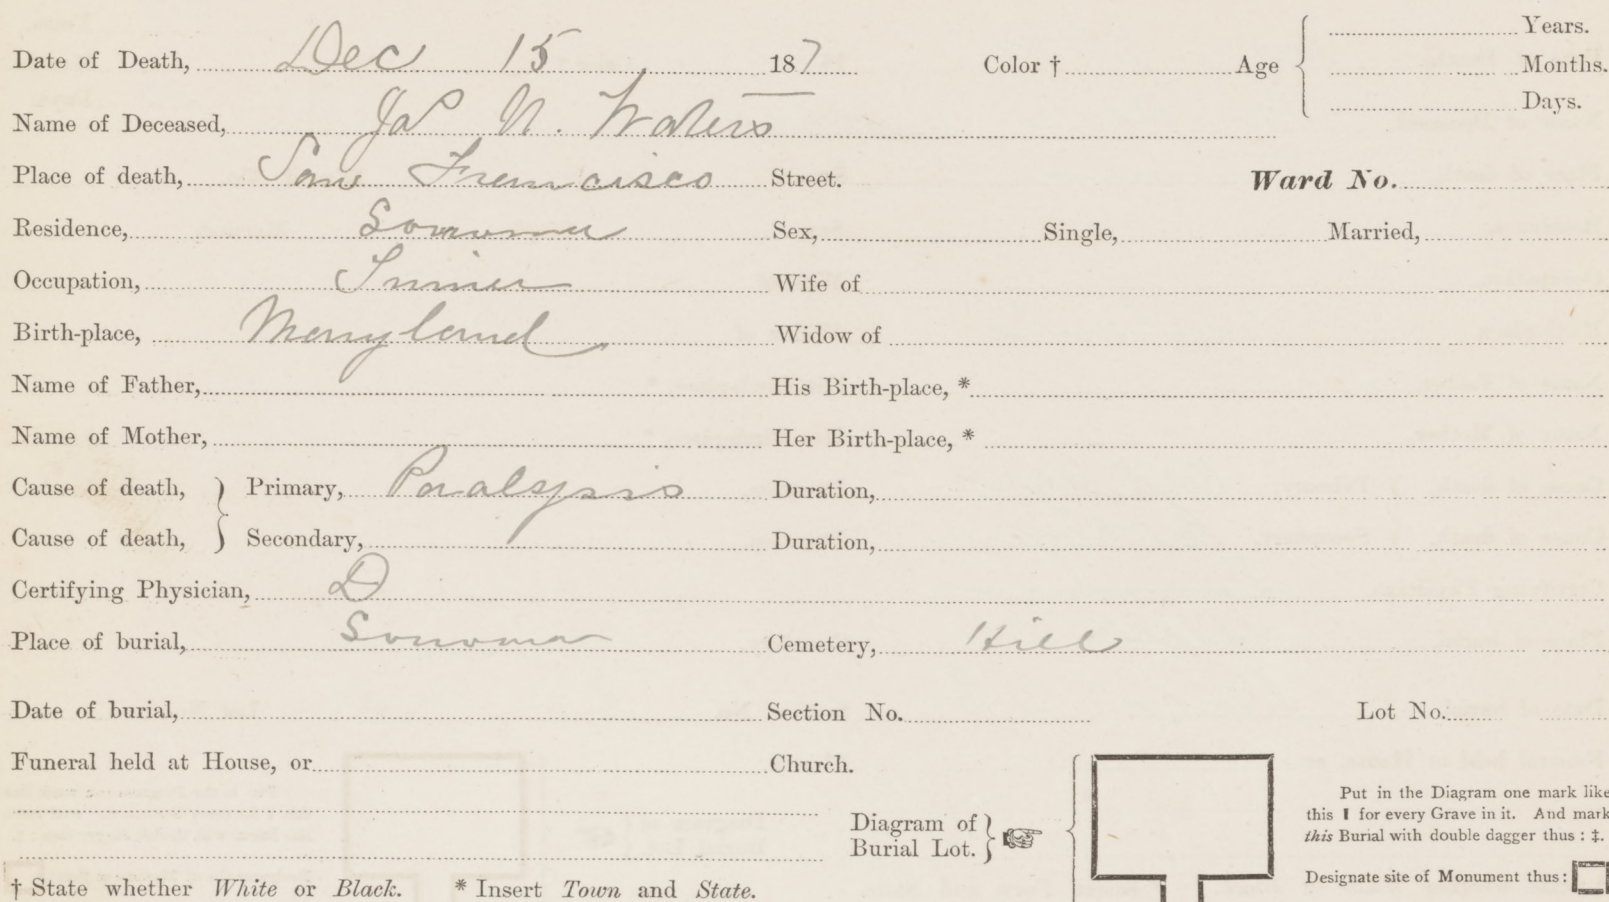 Date of Death, Dec 15 187 Color † Age Years.
Months.
Days.
Name of Deceased, Jas N. Waters
Place of death, San Francisco Street. Ward No.
Residence, Sonoma Sex, Single, Married,
Occupation, Wife of
Birth-place, Maryland Widow of
Name of Father, His Birth-place, *
Name of Mother, Her Birth-place, *
Cause of death, } Primary, Paralysis Duration,
Cause of death, } Secondary, Duration,
Certifying Physician, D
Place of burial, Sonoma Cemetery, Hill
Date of burial, Section No. Lot No.
Funeral held at House, or Church.
Put in the Diagram one mark like
this ❙ for every Grave in it. And mark
this Burial with double dagger thus : ‡.
Diagram of
Burial Lot. }
Designate site of Monument thus :
† State whether White or Black. * Insert Town and State.